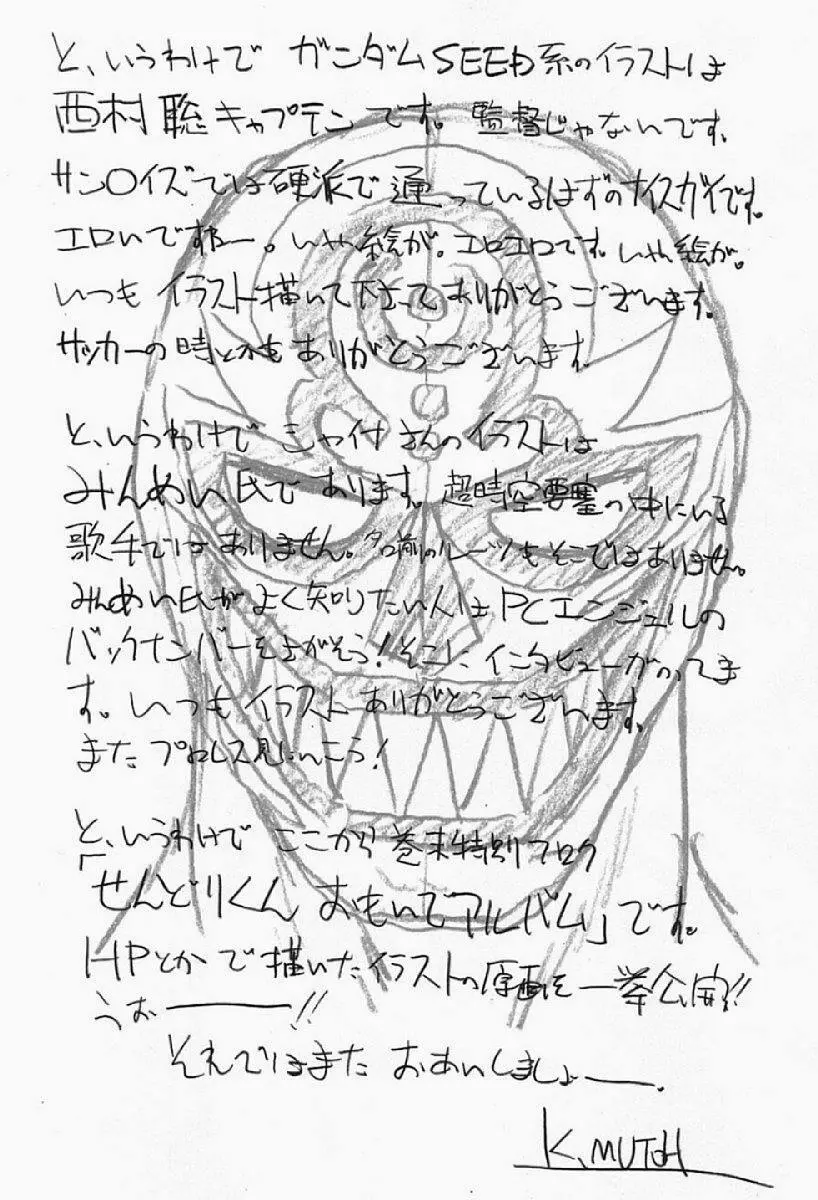 と、いうわけで ガンダムSEED系のイラストは
西村 聡 キャプテンです。監督じゃないです。
サン〇イズでは硬派で通っているはずのナイスガイです。
エロいですねー。いや絵が。エロエロです。いや絵が。
いつも イラスト描いて下さってありがとうございます。
サッカーの時とかもありがとうございます。
と、いうわけで さんのイラストは
みんめい氏で あります。超時空要塞の中にいる
歌手ではありません。名前のルーツもそこではありません。
みんめい氏がよく知りたい人はPCエンジェルの
バックナンバーをさがそう!そこにインタビューがのってま
す。いつもイラストありがとうございます。
またプロレス見にいこう!
と、いうわけで ここから 巻末特別フロク
「せんどりくん おもいでアルバム」です。
HPとかで描いたイラストの原画を一挙公開!!
うぉー!!
それではまた おあいしましょー。
K.MUTOH